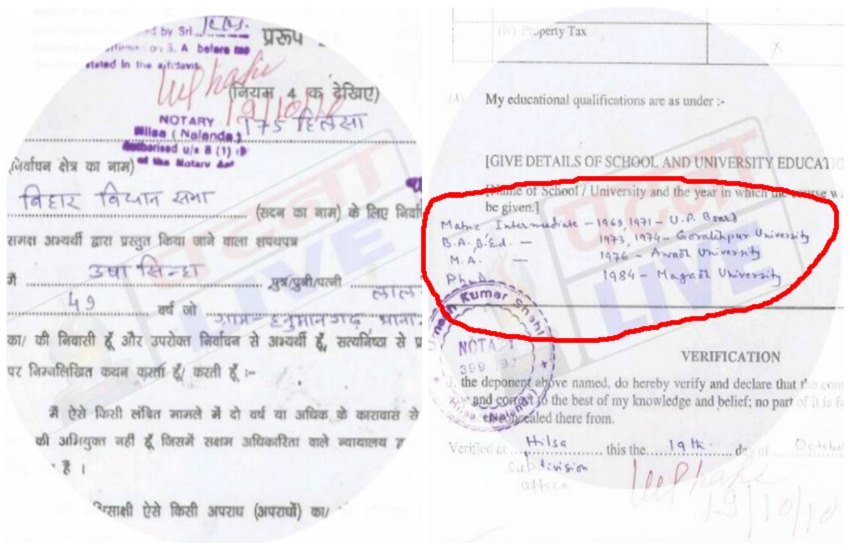 ed by Sri
on S. A before me
stated in the affidavit
प्ररूप
(नियम 4 क देखिए)
19/10/10
NOTARY
Hilsa (Nalanda)
Authorised u/s 8 (1)
of the Notary Act
175 हिलसा
(निर्वाचन क्षेत्र का नाम)
बिहार विधान सभा
(सदन का नाम) के लिए निर्वा
समक्ष अभ्यर्थी द्वारा प्रस्तुत किया जाने वाला शपथपत्र
मैं उषा सिन्हा पुत्र/पुत्री/पत्नी लाल
49 वर्ष जो ग्राम- हनुमानगढ़ थाना-
का/ की निवासी हूँ और उपरोक्त निर्वाचन से अभ्यर्थी हूँ, सत्यनिष्ठा से प्र
पर निम्नलिखित कथन करता हूँ/ करती हूँ :-
मैं ऐसे किसी लंबित मामले में दो वर्ष या अधिक के कारावास से
की अभियुक्त नहीं हूँ जिसमें सक्षम अधिकारिता वाले न्यायालय द्व
है ।
ऐसे किसी अपराध (अपराधों) का/
LIVE
(iv) Property Tax
My educational qualifications are as under :-
[GIVE DETAILS OF SCHOOL AND UNIVERSITY EDUCATIO
[Name of School / University and the year in which the course wa
be given.]
Matric, Intermediate - 1969, 1971 - U.P. Board
B.A. B.Ed - 1973, 1974 - Gorakhpur University
M.A. - 1976 - Awadh University
Ph.D. 1984 - Magadh University
Umesh Kumar Shahi
NOTARY
Hilsa (Nalanda)
VERIFICATION
I, the deponent above named, do hereby verify and declare that the cont
and correct to the best of my knowledge and belief; no part of it is fa
concealed there from.
Verified at Hilsa this the 19th day of October
Subdivision
office
19/10/10
LIVE